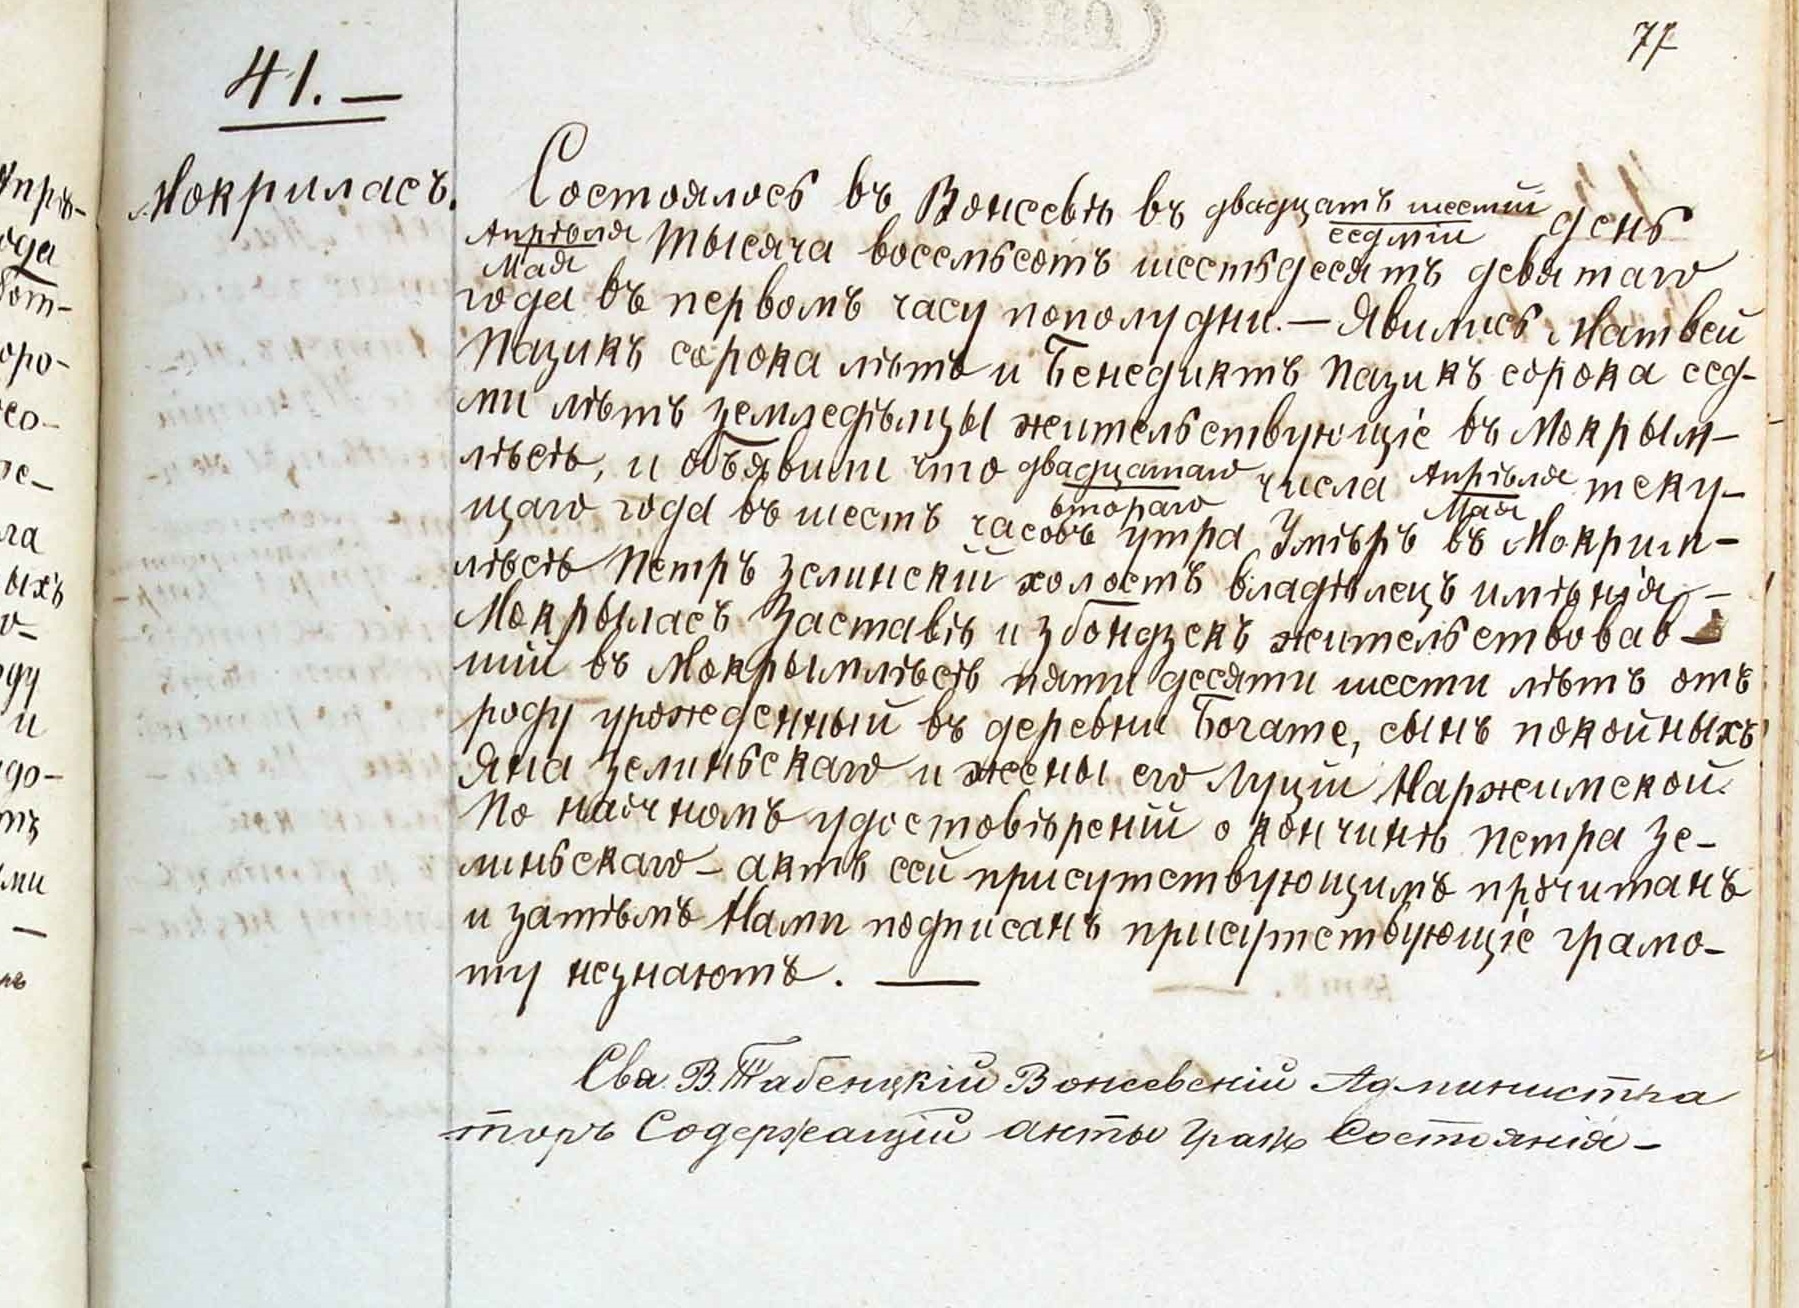 77
41. —
Мокриласъ.
Состоялось въ Вонсевѣ въ двадцать шестый день
седмый
Апрѣля Тысяча восемьсотъ шестьдесятъ девятаго
Мая
года въ первомъ часу пополудни. — Явились Матвей
Пазикъ сорока лѣтъ и Бенедиктъ Пазикъ сорока сед-
ми лѣтъ земледѣльцы жительствующіе въ Мокрым-
лѣсѣ, и объявили что двадцатаго числа Апрѣля теку-
втораго Мая
щаго года въ шесть часовъ утра Умѣръ въ Мокрим-
лѣсѣ Петръ Зелинскій холостъ владѣлецъ имѣнія —
Мокрыласъ Заставіѣ и Збондзекъ жительствовав-
шій въ Мокрымлѣсѣ пяти десяти шести лѣтъ отъ
роду урожденный въ деревни Богате, сынъ покойныхъ
Яна Зелиньскаго и жены его Луціи Наржимской.
По наочномъ удостовѣреніи о кончинѣ Петра Зе-
линьскаго — актъ сей присутствующимъ прочитанъ
и затѣмъ Нами подписанъ присутствующіе грамо-
ту незнаютъ. —
Ква. В. Табенцкій Вонсевскій Администра
торъ Содержащій акты Граж Состоянія —